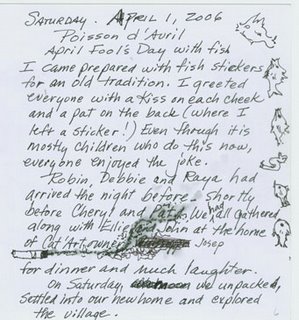 SATURDAY. APRIL 1, 2006
Poisson d'Avril
April Fool's Day with fish
I came prepared with fish stickers
for an old tradition. I greeted
everyone with a kiss on each cheek
and a pat on the back (where I
left a sticker!) Even though it is
mostly children who do this now,
everyone enjoyed the joke.
Robin, Debbie and Raya had
arrived the night before - shortly
before Cheryl and We all gathered
along with Ellie and John at the home
of Cat'Art owner Josep
for dinner and much laughter.
On Saturday, we unpacked,
settled into our new home and explored
the village.